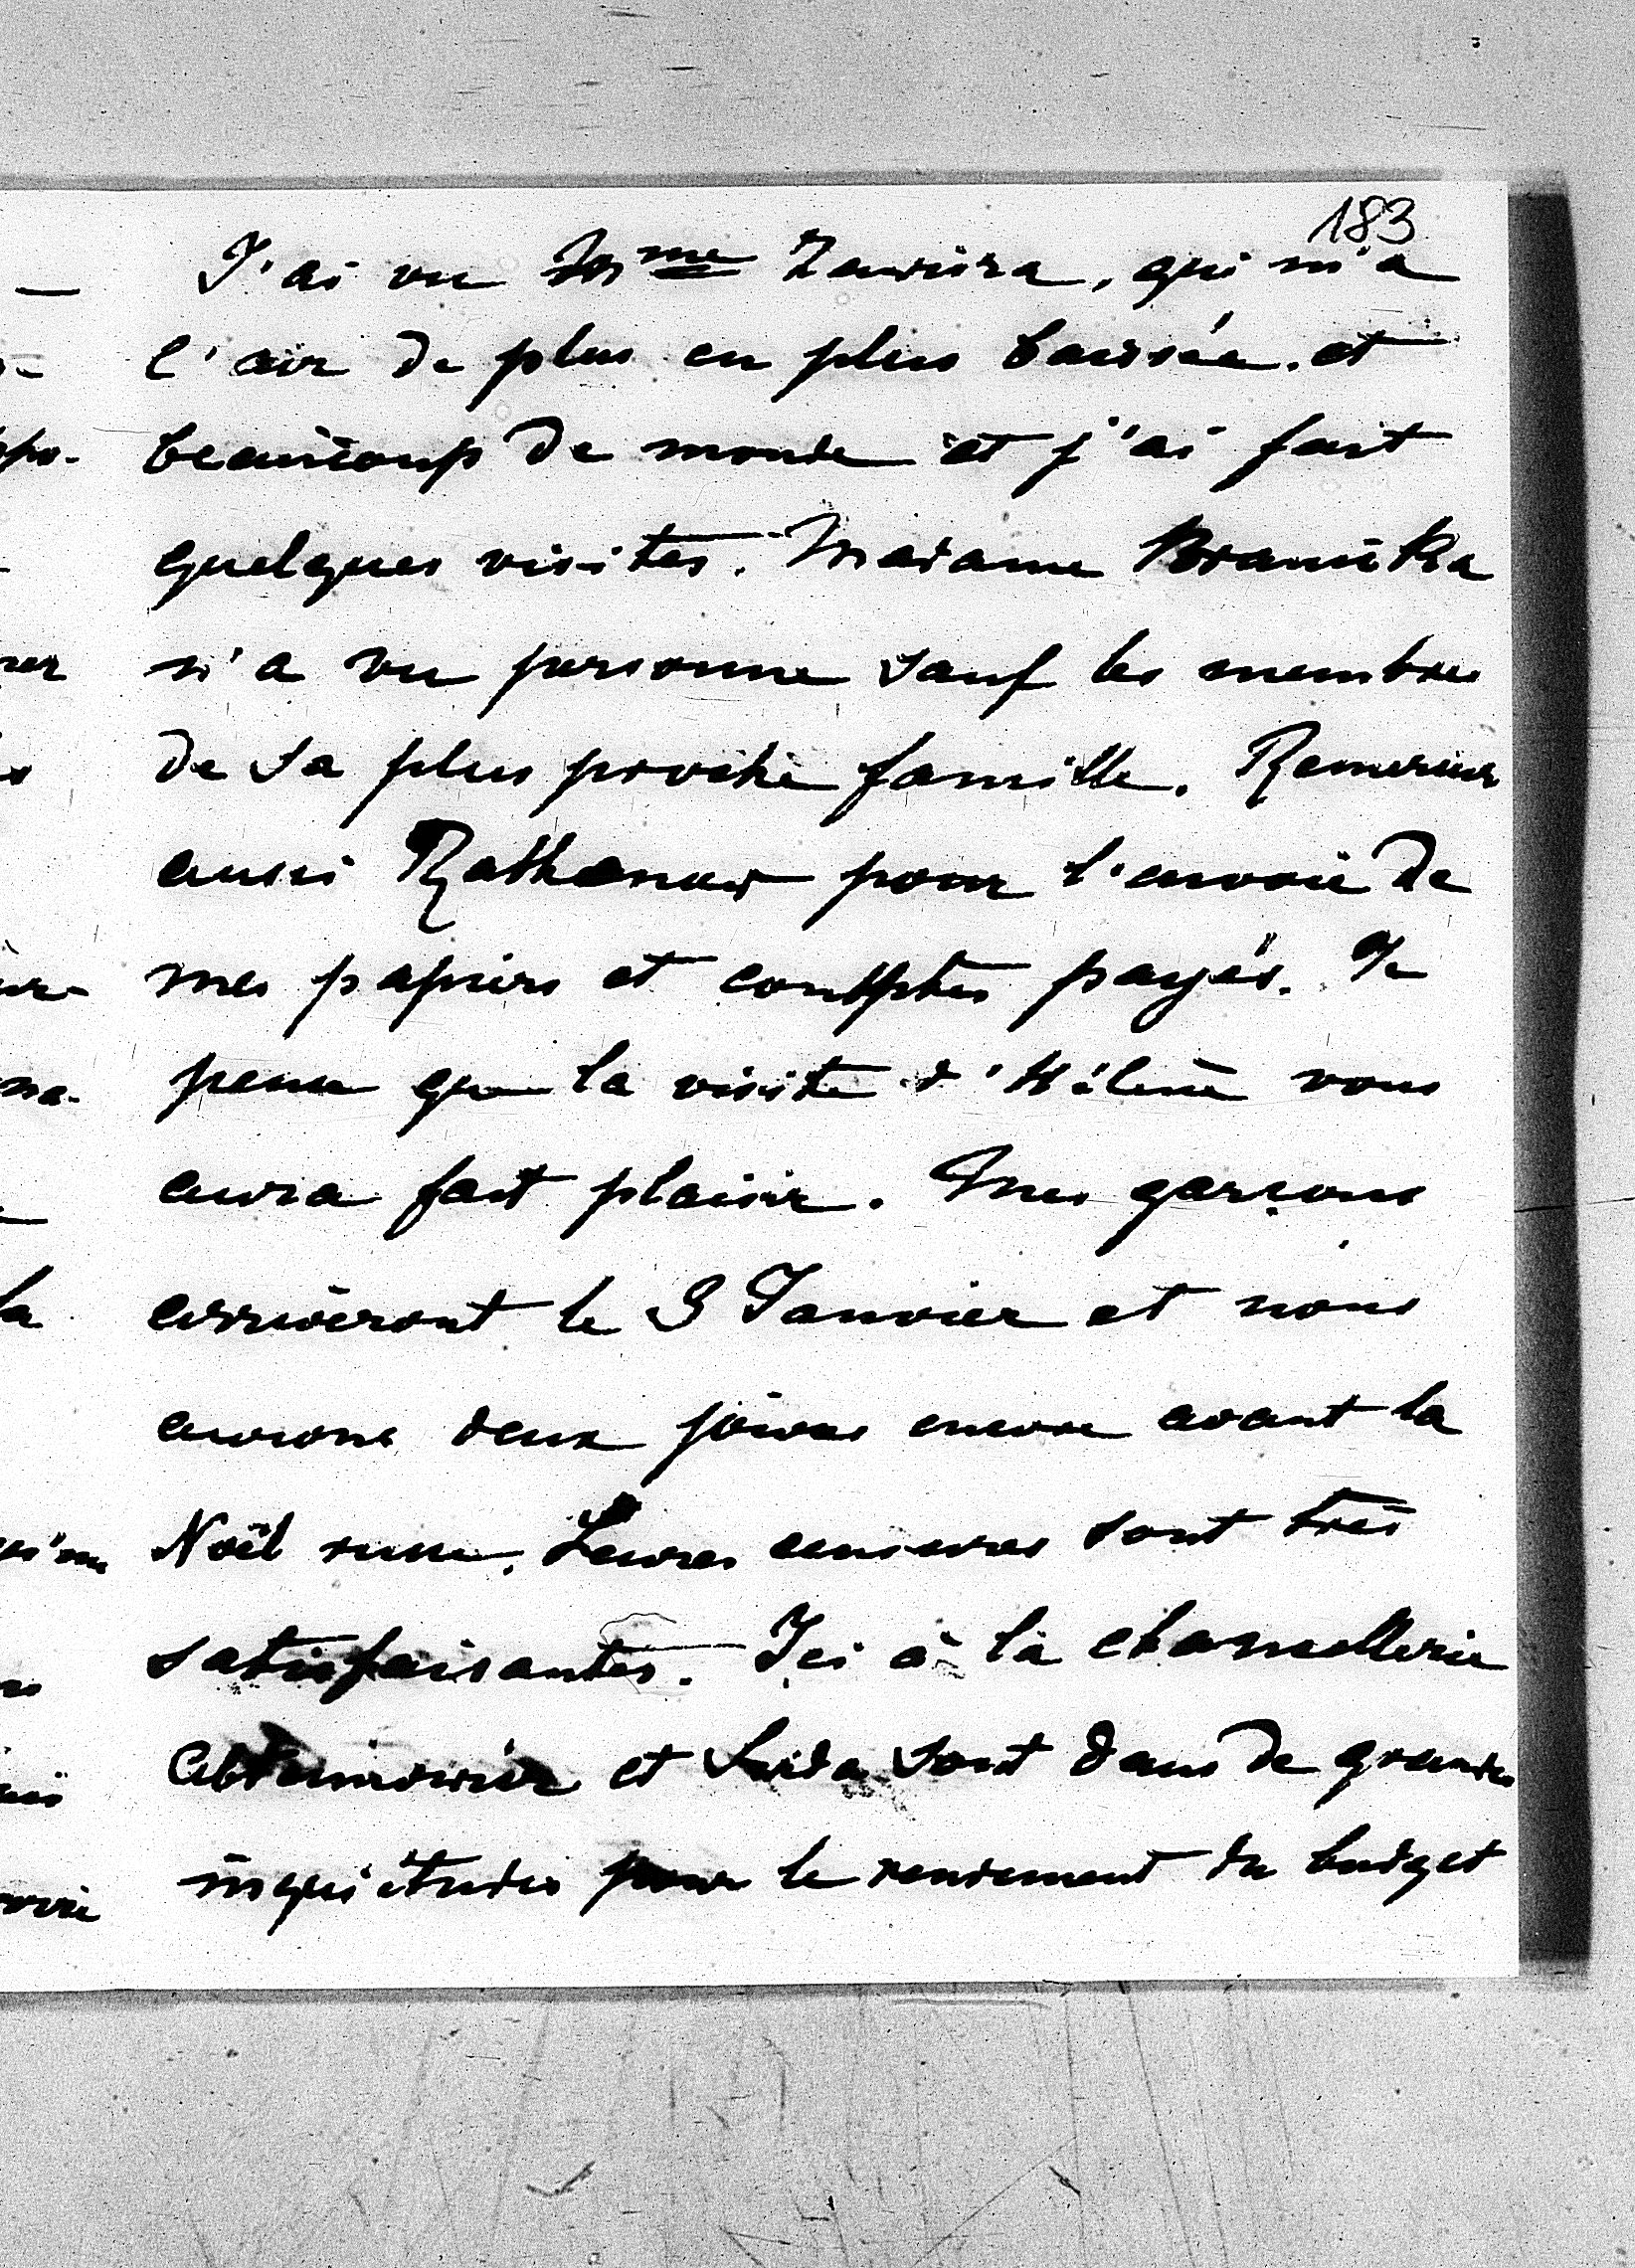 183
J'ai vu Mme Zawisza, qui m'a
l'air de plus en plus baissée. et
beaucoup de monde et j'ai fait
quelques visites. Madame Branicka
n'a vu personne sauf les membres
de sa plus proche famille. Remerciez
aussi Rathenow pour l'envoie de
mes papiers et comptes payés. Je
pense que la visite d'Hélène vous
aura fait plaisir. Mes garçons
arriveront le 3 Janvier et nous
aurons deux jours encore avant la
Noël russe. Leures censures sont très
satisfaisantes. Ici à la chancellerie
et sont dans de grandes
inquiétudes pour le rendement du budget